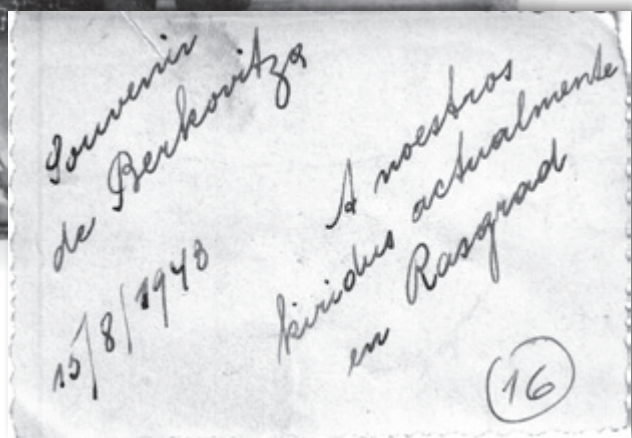 Souvenir
de Berkovitza
15/8/1943
A noestros
kiridus actualmente
en Rasgrad
16